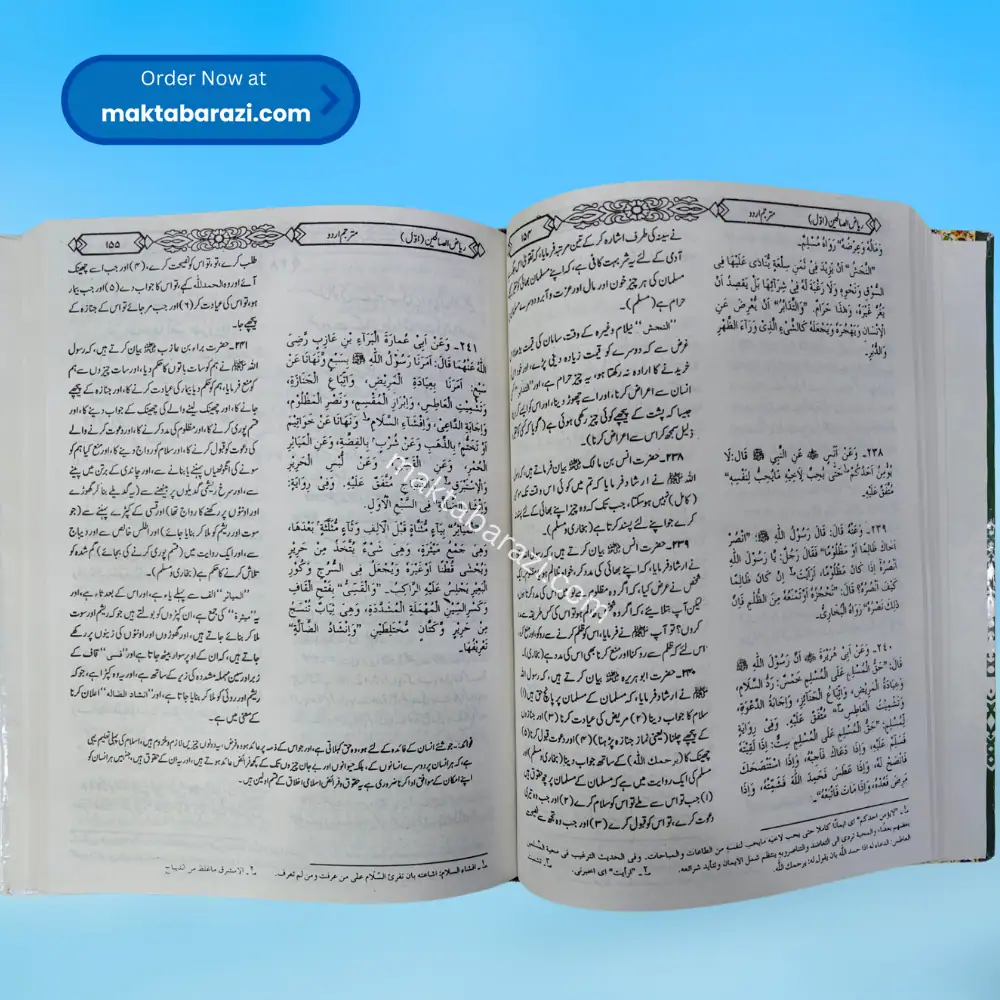 Order Now at
maktabarazi.com
ریاض الصالحین (اوّل)
مترجم اردو
۱۵۴
وَمَالُهُ وَعِرْضُهُ" رَوَاهُ مُسْلِمٌ۔
"النَّجْشُ" اَنْ يَزِيْدَ فِىْ ثَمَنِ سِلْعَةٍ يُنَادٰى عَلَيْهَا فِى
السُّوْقِ وَنَحْوِهِ وَلَا رَغْبَةَ لَهُ فِىْ شِرَائِهَا بَلْ يَقْصِدُ اَنْ
يَغُرَّ غَيْرَهُ، وَهٰذَا حَرَامٌ. وَالتَّدَابُرُ" اَنْ يُعْرِضَ عَنِ
الْاِنْسَانِ وَيَهْجُرَهُ وَيَجْعَلَهُ كَالشَّىْءِ الَّذِىْ وَرَاءَ الظَّهْرِ
وَالدُّبُرِ.
۲۳۸۔ وَعَنْ اَنَسٍ ﷺ عَنِ النَّبِىِّ ﷺ قَالَ: لَا
يُؤْمِنُ اَحَدُكُمْ حَتّٰى يُحِبَّ لِاَخِيْهِ مَايُحِبُّ لِنَفْسِهِ"
مُتَّفَقٌ عَلَيْهِ.
۲۳۹۔ وَعَنْهُ قَالَ: قَالَ رَسُوْلُ اللّٰهِ ﷺ: "اُنْصُرْ
اَخَاكَ ظَالِمًا اَوْ مَظْلُوْمًا" فَقَالَ رَجُلٌ: يَا رَسُوْلَ اللّٰهِ
اَنْصُرُهُ اِذَا كَانَ مَظْلُوْمًا، اَرَاَيْتَ اِنْ كَانَ ظَالِمًا
كَيْفَ اَنْصُرُهُ؟ قَالَ: "تَحْجُزُهُ اَوْ تَمْنَعُهُ مِنَ الظُّلْمِ فَاِنَّ
ذٰلِكَ نَصْرُهُ" رَوَاهُ الْبُخَارِىُّ.
۲۴۰۔ وَعَنْ اَبِىْ هُرَيْرَةَ ﷺ اَنَّ رَسُوْلَ اللّٰهِ ﷺ
قَالَ: "حَقُّ الْمُسْلِمِ عَلَى الْمُسْلِمِ خَمْسٌ: رَدُّ السَّلَامِ،
وَعِيَادَةُ الْمَرِيْضِ، وَاتِّبَاعُ الْجَنَائِزِ، وَاِجَابَةُ الدَّعْوَةِ،
وَتَشْمِيْتُ الْعَاطِسِ" مُتَّفَقٌ عَلَيْهِ. وَفِىْ رِوَايَةٍ
لِمُسْلِمٍ: "حَقُّ الْمُسْلِمِ عَلَى الْمُسْلِمِ سِتٌّ: اِذَا لَقِيْتَهُ
فَسَلِّمْ عَلَيْهِ، وَاِذَا دَعَاكَ فَاَجِبْهُ، وَاِذَا اسْتَنْصَحَكَ
فَانْصَحْ لَهُ، وَاِذَا عَطَسَ فَحَمِدَ اللّٰهَ فَشَمِّتْهُ، وَاِذَا
مَرِضَ فَعُدْهُ، وَاِذَا مَاتَ فَاتْبَعْهُ"۔
نے سینہ کی طرف اشارہ کر کے تین مرتبہ فرمایا، کہ تقویٰ
آدمی کے لئے یہ شر بہت کافی ہے، کہ اپنے مسلمان بھائی
مسلمان کی ہر چیز خون اور مال اور عزت و آبرو دوسرے
حرام ہے (مسلم)۔
"النجش" نیلام وغیرہ کے وقت سامان کی قیمت بڑھانا
غرض سے کہ دوسرے کو قیمت زیادہ دینی پڑے، اور خود
خریدنے کا ارادہ نہ رکھتا ہو، یہ چیز حرام ہے، اور
انسان سے اعراض کرنا، اور اسے چھوڑ دینا، اور اس کو ایسے
جیسا کہ پشت کے پیچھے کوئی چیز رکھی ہوئی ہے (گویا کہ
ذلیل سمجھ کر اس سے اعراض کرنا)۔
۲۳۸۔ حضرت انس بن مالک ﷺ بیان فرماتے ہیں، کہ رسول
نے ارشاد فرمایا، کہ تم میں کوئی اس وقت تک
(کامل) نہیں ہو سکتا، جب تک کہ وہ چیز اپنے بھائی کے لئے
کرے جو اپنے لئے پسند کرتا ہے (بخاری و مسلم)۔
۲۳۹۔ حضرت انس ﷺ بیان کرتے ہیں، کہ رسول
نے ارشاد فرمایا، کہ اپنے بھائی کی مدد کر، خواہ ظالم
شخص نے عرض کیا، کہ اگر وہ مظلوم ہو
لیکن آپ بتلائیے، کہ اگر وہ ظالم ہو تو اس کی کس طریقہ سے
کروں؟ تو آپ ﷺ نے فرمایا، اس کو ظلم کرنے سے روکو
اس لئے کہ ظلم سے روکنا اور منع کرنا بھی اس کی مدد ہے (بخاری)۔
۲۴۰۔ حضرت ابو ہریرہ ﷺ بیان کرتے ہیں، کہ رسول اللہ
نے ارشاد فرمایا، کہ مسلمان کے مسلمان پر پانچ حق ہیں (۱)
سلام کا جواب دینا (۲) مریض کی عیادت کرنا (۳) اور جنازوں
کے پیچھے چلنا (یعنی نماز جنازہ پڑھنا) (۴) اور دعوت قبول کرنا (۵)
چھینک کا (یرحمک اللہ) کے ساتھ جواب دینا (بخاری و مسلم) اور
مسلم کی ایک روایت میں ہے کہ مسلمان کے مسلمان پر چھ حقوق ہیں
(۱) جب تو اس سے ملے تو اس کو سلام کرے (۲) اور جب وہ تیری
دعوت کرے، تو اس کو قبول کرے (۳) اور جب وہ تجھ سے نصیحت
۱۔ "لايؤمن احدكم" اى ايمانًا كاملًا حتى يحب لاخيه مايحب لنفسه من الطاعات والمباحات. وفى الحديث الترغيب فى محبة المسلمين
بعضهم بعضًا، والمحبة تؤدى الى التعاضد والتناصروبه ينتظم شمل الايمان وتتأيد شرائعه. ۲۔ "ارأيت" اى اخبرنى. ۳۔ تشميت
العاطس: الدعاء له اذا حمد اللّٰه بان يقول له: يرحمك اللّٰه.
ریاض الصالحین (اوّل)
مترجم اردو
۱۵۵
۲۴۱۔ وَعَنْ اَبِىْ عُمَارَةَ الْبَرَاءِ بْنِ عَازِبٍ رَضِىَ
اللّٰهُ عَنْهُمَا قَالَ: اَمَرَنَا رَسُوْلُ اللّٰهِ ﷺ بِسَبْعٍ وَنَهَانَا عَنْ
سَبْعٍ: اَمَرَنَا بِعِيَادَةِ الْمَرِيْضِ، وَاتِّبَاعِ الْجَنَازَةِ،
وَتَشْمِيْتِ الْعَاطِسِ، وَاِبْرَارِ الْمُقْسِمِ، وَنَصْرِ الْمَظْلُوْمِ،
وَاِجَابَةِ الدَّاعِىْ، وَاِفْشَاءِ السَّلَامِ وَنَهَانَا عَنْ خَوَاتِيْمَ
اَوْ تَخَتُّمٍ بِالذَّهَبِ وَعَنْ شُرْبٍ بِالْفِضَّةِ، وَعَنِ الْمَيَاثِرِ
الْحُمْرِ، وَعَنِ الْقَسِّىِّ وَعَنْ لُبْسِ الْحَرِيْرِ
وَالْاِسْتَبْرَقِ وَالدِّيْبَاجِ مُتَّفَقٌ عَلَيْهِ. وَفِىْ رِوَايَةٍ:
وَاِنْشَادِ الضَّالَّةِ فِى السَّبْعِ الْاُوَلِ.
"الْمَيَاثِرُ" بِيَاءٍ مُثَنَّاةٍ قَبْلَ الْاَلِفِ وَثَاءٍ مُثَلَّثَةٍ بَعْدَهَا،
وَهِىَ جَمْعُ مِيْثَرَةٍ، وَهِىَ شَىْءٌ يُتَّخَذُ مِنْ حَرِيْرٍ
وَيُحْشٰى قُطْنًا اَوْغَيْرَهُ وَيُجْعَلُ فِى السُّرُجِ وَكُوْرِ
الْبَعِيْرِ يَجْلِسُ عَلَيْهِ الرَّاكِبُ. "وَالْقَسِّىُّ" بِفَتْحِ الْقَافِ
وَكَسْرِالسِّيْنِ الْمُهْمَلَةِ الْمُشَدَّدَةِ، وَهِىَ ثِيَابٌ تُنْسَجُ
مِنْ حَرِيْرٍ وَكَتَّانٍ مُخْتَلِطَيْنِ "وَاِنْشَادُ الضَّالَّةِ"
تَعْرِيْفُهَا.
طلب کرے، تو، تو اس کو نصیحت کرے، (۴) اور جب اسے چھینک
آئے اور وہ الحمد للہ کہے، تو اس کا جواب دے (۵) اور جب بیمار
ہو، تو اس کی عیادت کر (۶) اور جب مر جائے تو اس کے جنازہ کے
پیچھے جا۔
۲۴۱۔ حضرت براء بن عازب ﷺ بیان کرتے ہیں، کہ رسول
اللہ ﷺ نے ہم کو سات باتوں کا حکم دیا، اور سات چیزوں سے ہم
کو منع فرمایا، ہم کو حکم دیا بیمار کی عیادت کرنے کا، اور جنازہ کے پیچھے
جانے کا، اور چھینک لینے والے کی چھینک کے جواب دینے کا، اور
قسم پوری کرنے کا، اور مظلوم کی مدد کرنے کا، اور دعوت کرنے والے
کی دعوت کو قبول کرنے کا، اور سلام کو رواج دینے کا، اور منع کیا ہم کو
سونے کی انگوٹھیاں پہننے یا بنانے سے، اور چاندی کے برتن میں پینے
سے، اور سرخ ریشمی گدیلوں پر بیٹھنے سے (یہ گدیلے بنا کر گھوڑے
اور اونٹوں پر رکھنے کا رواج تھا) اور قسی کے کپڑے پہننے سے (جو
سوت اور ریشم ملا کر بنایا جائے) اور اطلس خالص سے اور دیباج
سے، اور ایک روایت میں (قسم پوری کرنے کی بجائے) گم شدہ کو
تلاش کرنے کا حکم ہے (بخاری و مسلم)۔
"المیاثر" الف سے پہلے یاء ہے، اور اس کے بعد ثاء ہے، اور
یہ "میثرۃ" کی جمع ہے، ان کپڑوں کو بولتے ہیں جو کہ ریشم اور سوت
ملا کر بنائے جاتے ہیں، اور گھوڑوں اور اونٹوں کی زینوں پر رکھے
جاتے ہیں، کہ ان کے اوپر سوار بیٹھ جاتا ہے اور "قسی" قاف کے
زبر اور سین مہملہ مشددہ کی زیر کے ساتھ ہے، اور یہ وہ کپڑا ہے، جو کہ
ریشم اور روئی کو ملا کر بنایا جاتا ہے، اور "انشاد الضالہ" اعلان کرنا
کے معنی میں ہے۔
فوائد:۔ جو شئے انسان کے فائدہ کے لئے ہو، وہ حق کہلاتی ہے، اور جو اس کے ذمہ پر عائد ہو وہ فرض، یہ دونوں چیزیں لازم و ملزوم ہیں، اسلام کی پہلی تعلیم یہی
ہے، کہ ہر انسان پر دوسرے انسانوں کے، بلکہ حیوانوں اور بے جان چیزوں تک کچھ فرائض عائد ہوتے ہیں، اور یہ ان کے حقوق ہیں، جنہیں ہر انسان کو
اپنے امکان کے موافق ادا کرنا ضروری ہے یہ حقوق و فرائض اسلامی اخلاق کے قسم اولین ہیں۔
۱۔ افشاء السلام: اشاعته بان تقرئ السَّلام على من عرفت ومن لم تعرف. ۲۔ الاستبرق ماغلظ من الديباج
maktabarazi.com